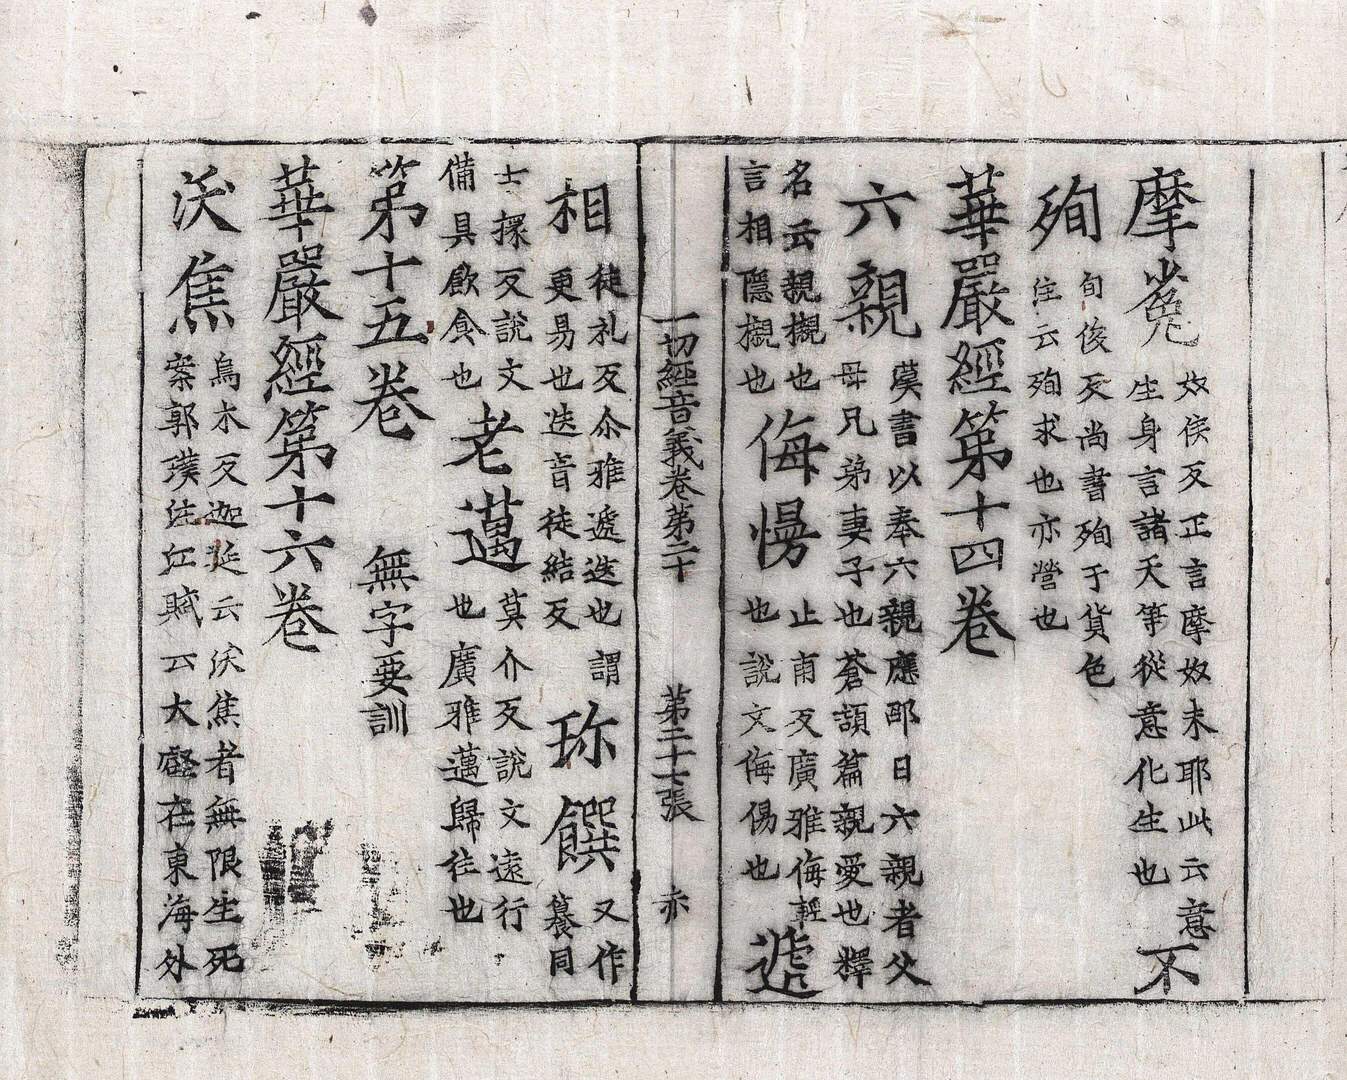 摩㝹
奴侯反正言摩奴末耶此云意
生身言諸天等從意化生也
不
殉
旬俊反尚書殉于貨色
注云殉求也亦營也
華嚴經第十四卷
六親
漢書以奉六親應邵曰六親者父
母兄弟妻子也蒼頡篇親愛也釋
名云親櫬也
言相隱櫬也
侮慢
止甫反廣雅侮輕
也說文侮傷也
遞
一切經音義卷第二十 第二十七張 赤
相
徒礼反尒雅遞迭也謂
更易也迭音徒結反
珎饌
又作
籑同
士反說文
備具飲食也
老邁
莫介反說文遠行
也廣雅邁歸往也
第十五卷 無字要訓
華嚴經第十六卷
沃焦
烏木反迦延云沃焦者無限生死
案郭璞注江賦云大壑在東海外